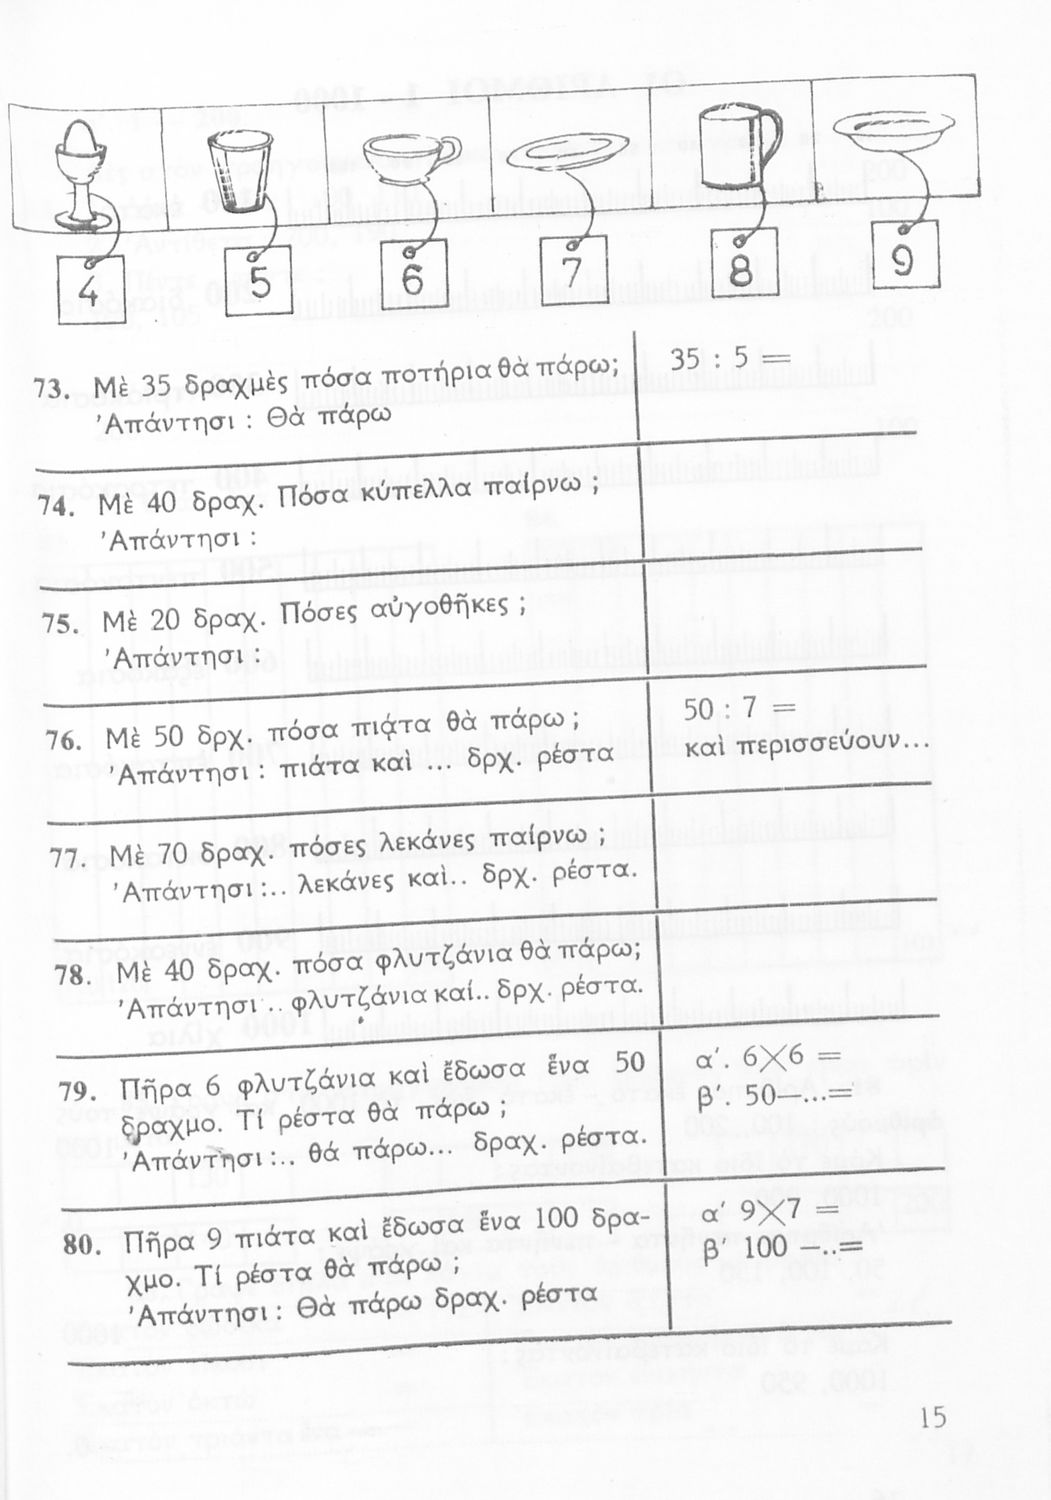 4 5 6 7 8 9
73. Μὲ 35 δραχμὲς πόσα ποτήρια θὰ πάρω; 35 : 5 =
Ἀπάντησι : Θὰ πάρω
74. Μὲ 40 δραχ. Πόσα κύπελλα παίρνω ;
Ἀπάντησι :
75. Μὲ 20 δραχ. Πόσες αὐγοθῆκες ;
Ἀπάντησι :
76. Μὲ 50 δρχ. πόσα πιάτα θὰ πάρω ; 50 : 7 =
Ἀπάντησι : πιάτα καὶ ... δρχ. ρέστα καὶ περισσεύουν...
77. Μὲ 70 δραχ. πόσες λεκάνες παίρνω ;
Ἀπάντησι :.. λεκάνες καὶ.. δρχ. ρέστα.
78. Μὲ 40 δραχ. πόσα φλυτζάνια θὰ πάρω;
Ἀπάντησι .. φλυτζάνια καί.. δρχ. ρέστα.
79. Πῆρα 6 φλυτζάνια καὶ ἔδωσα ἕνα 50 α΄. 6×6 =
δραχμο. Τί ρέστα θὰ πάρω ; β΄ 50—...=
Ἀπάντησι :.. θά πάρω... δραχ. ρέστα.
80. Πῆρα 9 πιάτα καὶ ἔδωσα ἕνα 100 δρα- α΄ 9×7 =
χμο. Τί ρέστα θὰ πάρω ; β΄ 100 —..=
Ἀπάντησι : Θὰ πάρω δραχ. ρέστα
15